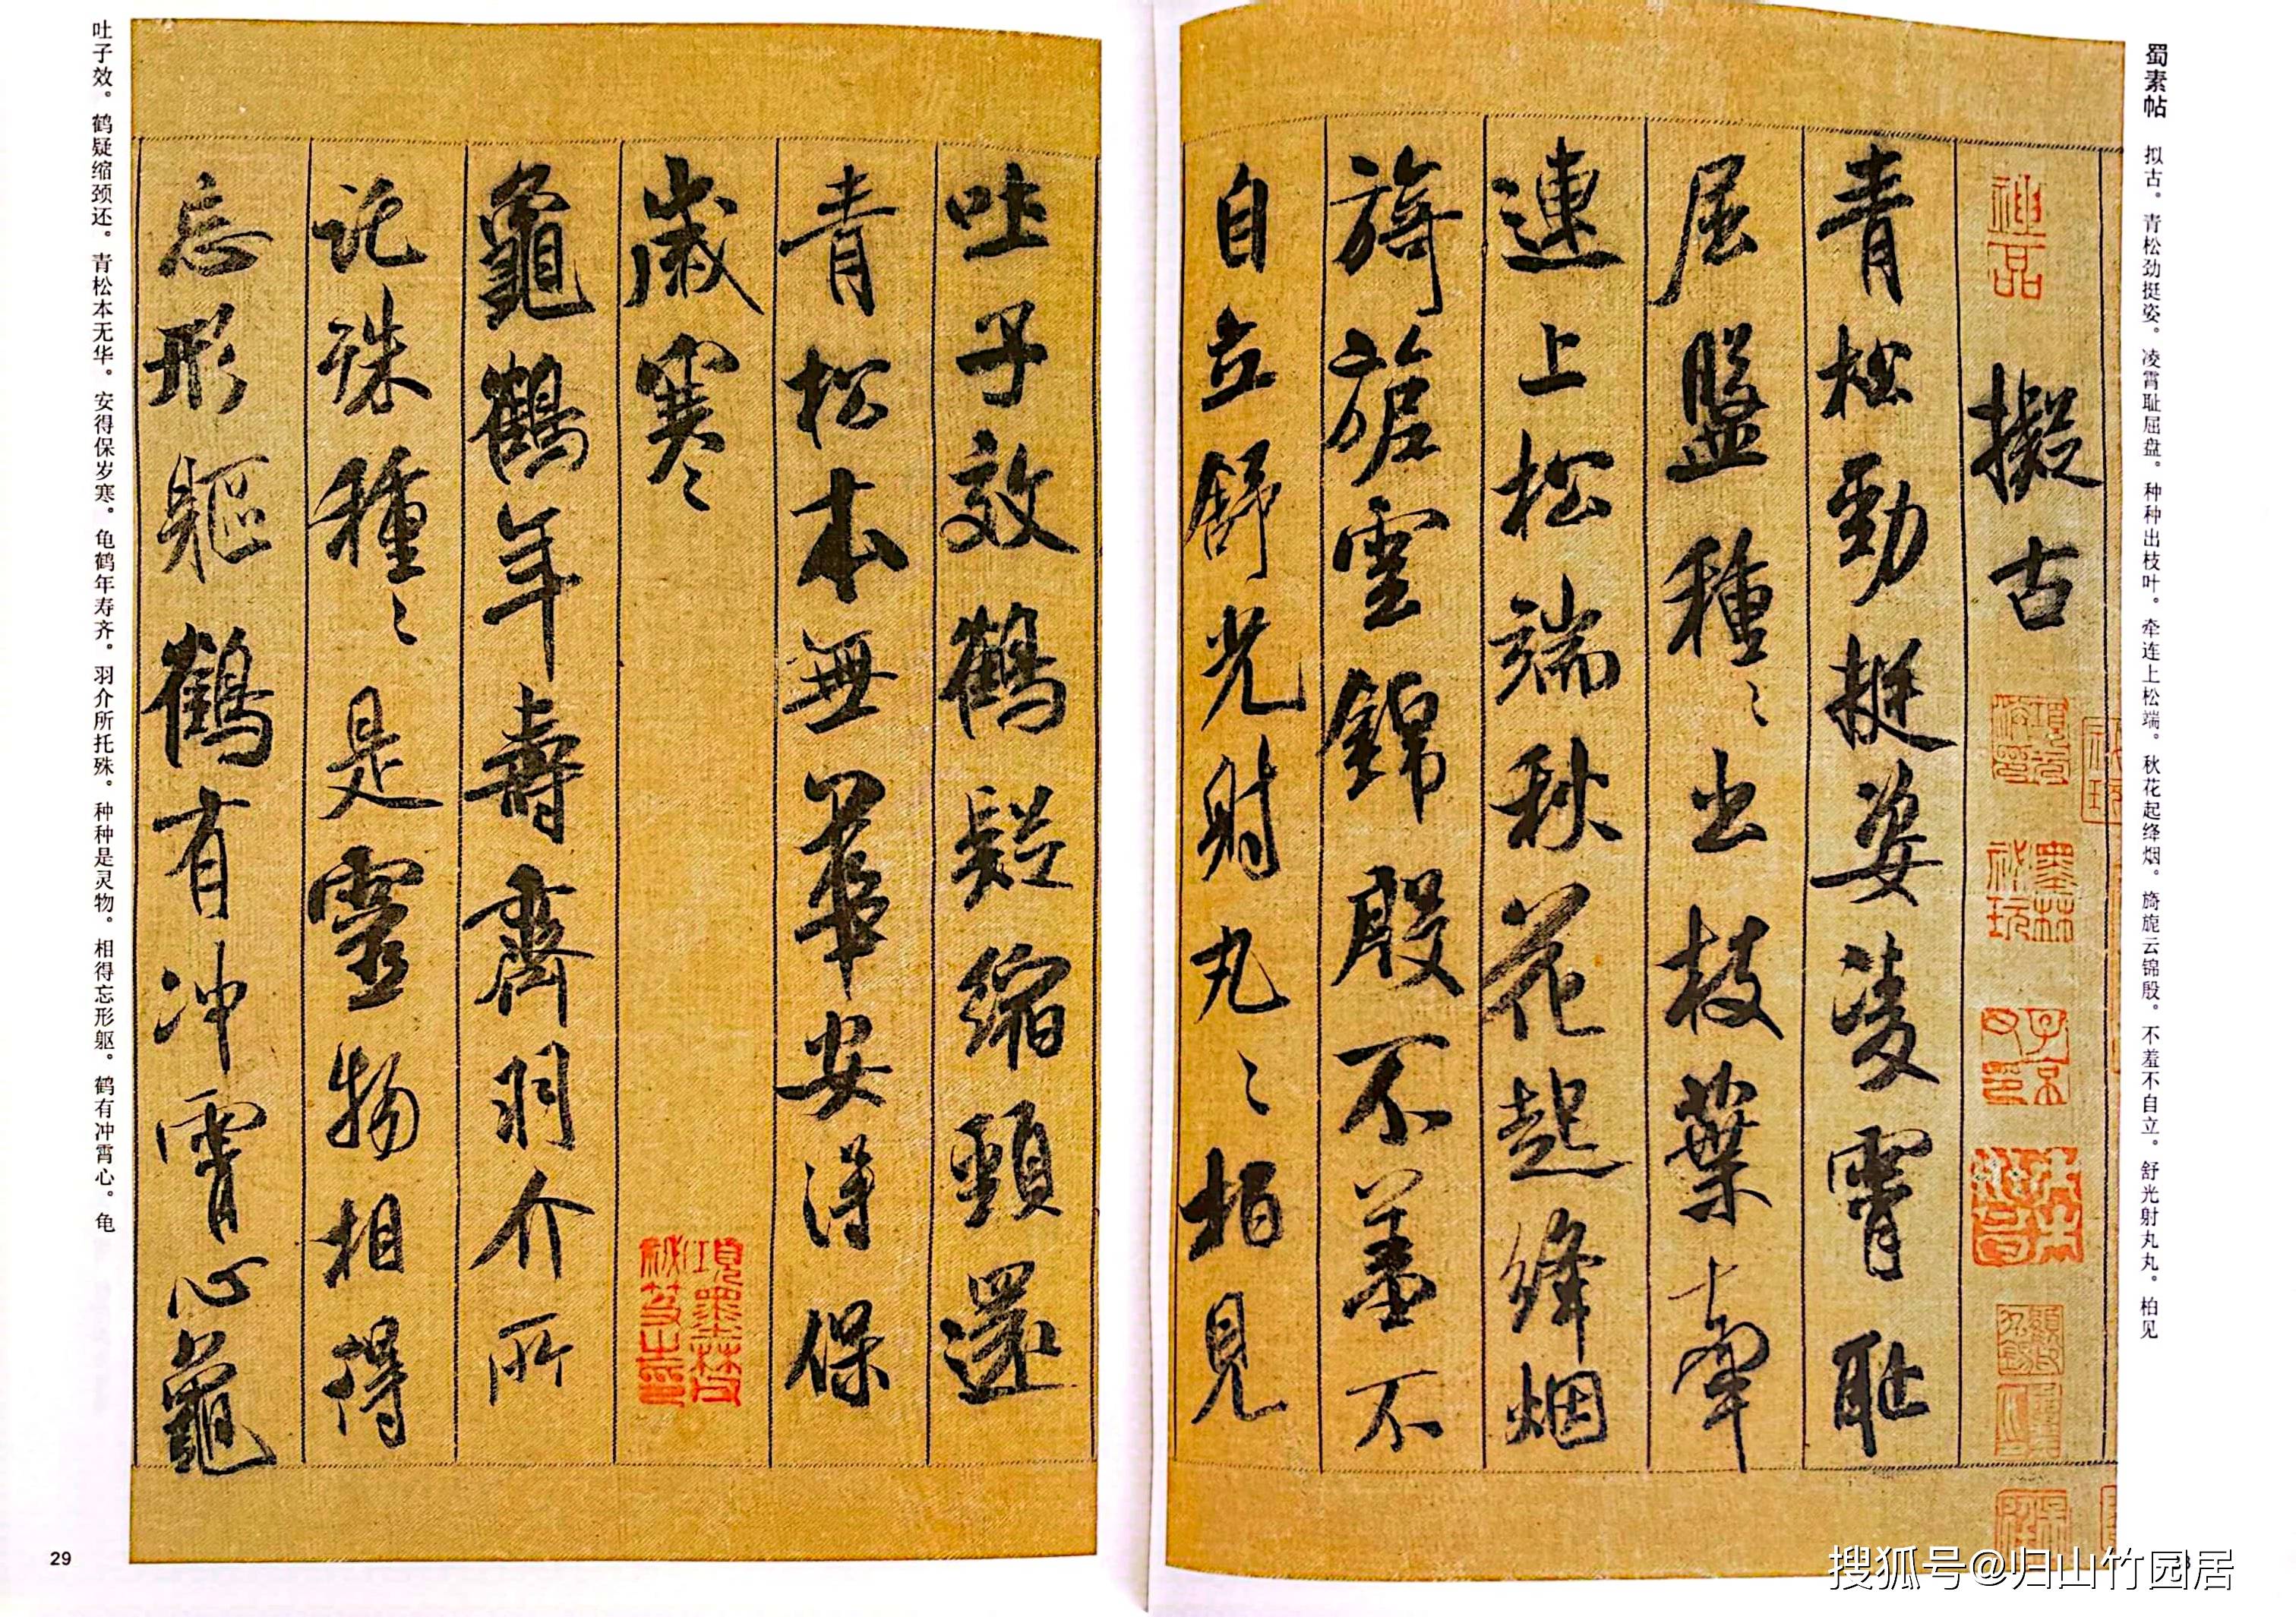 蜀素帖 拟古。青松劲挺姿。凌霄耻屈盘。种种出枝叶。牵连上松端。秋花起绛烟。旖旎云锦殷。不羞不自立。舒光射丸丸。柏见
神品
擬古
青松勁挺姿凌霄耻
屈盤種〻出枝葉牽
連上松端秋花起絳烟
旖旎雲錦殷不羞不
自立舒光射丸〻柏見
吐子效鶴疑縮頸還
青松本無華安得保
歲寒〻
龜鶴年壽齊羽介所
託殊種〻是靈物相得
忘形軀鶴有冲霄心龜
吐子效。鹤疑缩颈还。青松本无华。安得保岁寒。龟鹤年寿齐。羽介所托殊。种种是灵物。相得忘形躯。鹤有冲霄心。龟
項墨林父
祕笈之印
墨林
祕玩
子京
父印
29
搜狐号@归山竹园居